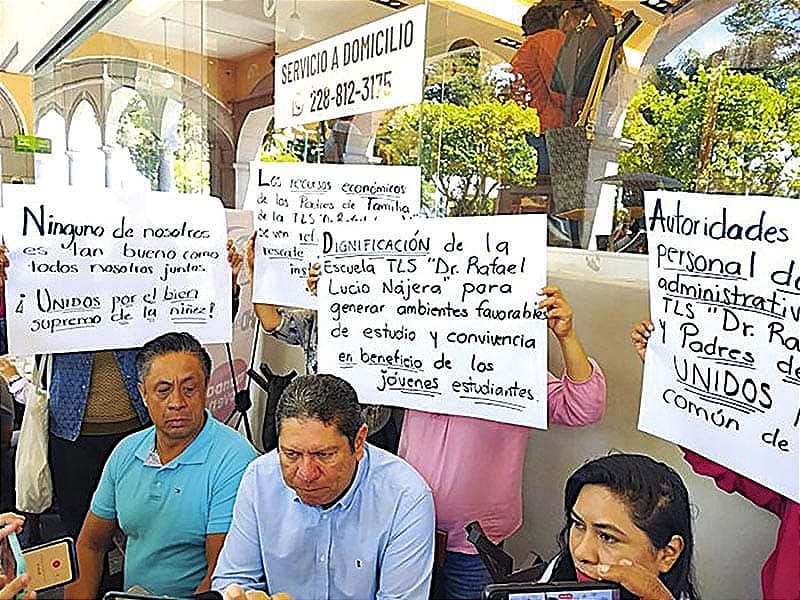 SERVICIO A DOMICILIO
228-812-3175
Ninguno de nosotros
es tan bueno como
todos nosotros juntos.
¡UNIDOS por el bien
supremo de la niñez!
Los recursos económicos
de los Padres de Familia
de la TLS
se ven
rescate
DIGNIFICACIÓN de la
Escuela TLS "Dr. Rafael
Lucio Nájera" para
generar ambientes favorables
de estudio y convivencia
en beneficio de los
jóvenes estudiantes.
Autoridades
personal
administrativo
TLS "Dr. Ra
y Padres de
UNIDOS
común de